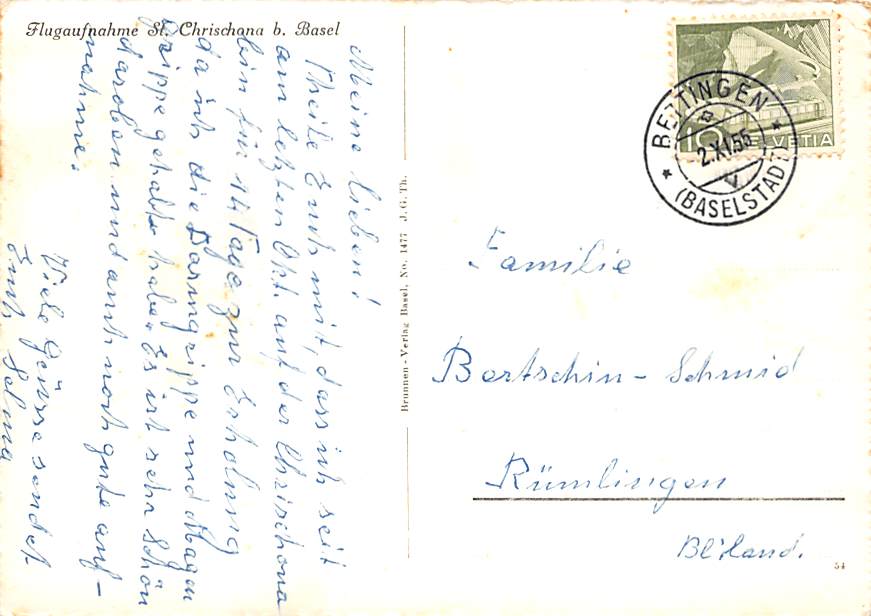 Flugaufnahme St. Chrischona b. Basel
Meine Lieben!
Theile Euch mit, dass ich seit
am letzten Okt. auf der Chrischona
bin für 14 Tage zur Erholung
da ich die Darmgrippe und Magen
grippe gehabt habe. Es ist sehr schön
daroben und auch noch gute auf-
nahme.
Viele Grüsse sendet
Euch Selma
Brunnen-Verlag Basel, No. 1477 J. G. Th.
BETTINGEN
2.XI.55
(BASELSTADT)
10 HELVETIA
Familie
Bertschin-Schmid
Rümlingen
Bl'land.
54